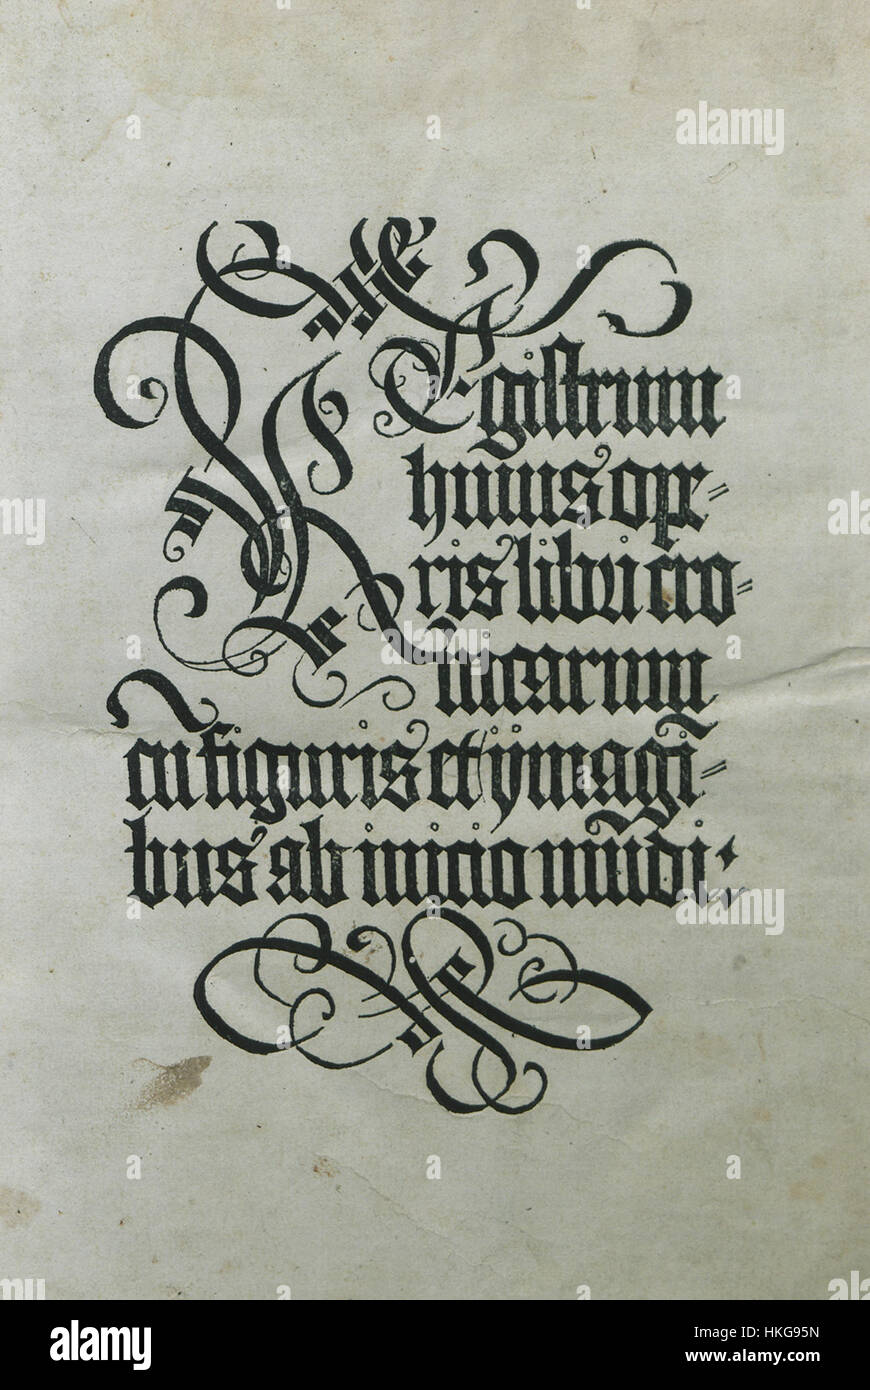 REgistrum
huius ope⸗
ris libri cro⸗
nicarum
cū figuris et ijmagī⸗
bus ab inicio mūdi:
a
alamy stock photo
alamy
Image ID: HKG95N
www.alamy.com